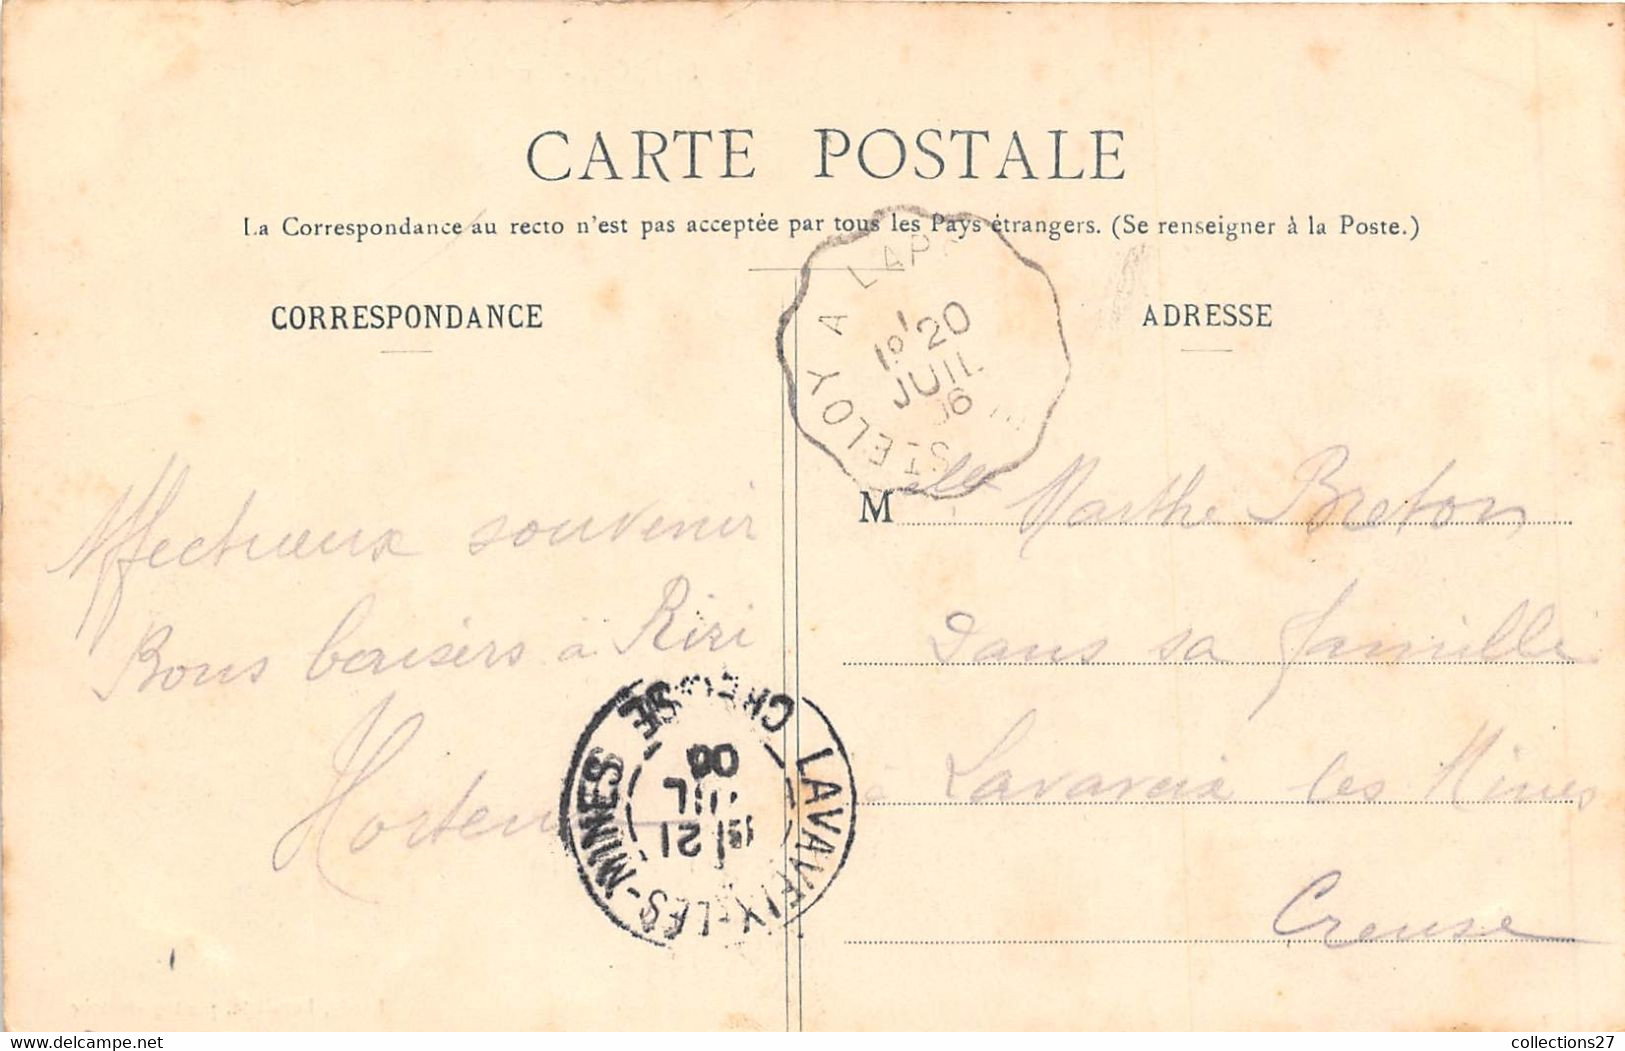 CARTE POSTALE
La Correspondance au recto n'est pas acceptée par tous les Pays étrangers. (Se renseigner à la Poste.)
CORRESPONDANCE
ADRESSE
ST ELOY A LAP
20
JUIL
06
Affectueux souvenir
Bons baisers à Riri
Horten
Melle Marthe Breton
Dans sa famille
à Lavaveix les Mines
Creuse
LAVAVEIX-LES-MINES CREUSE
21
JUIL
06
delcampe.net
collections27